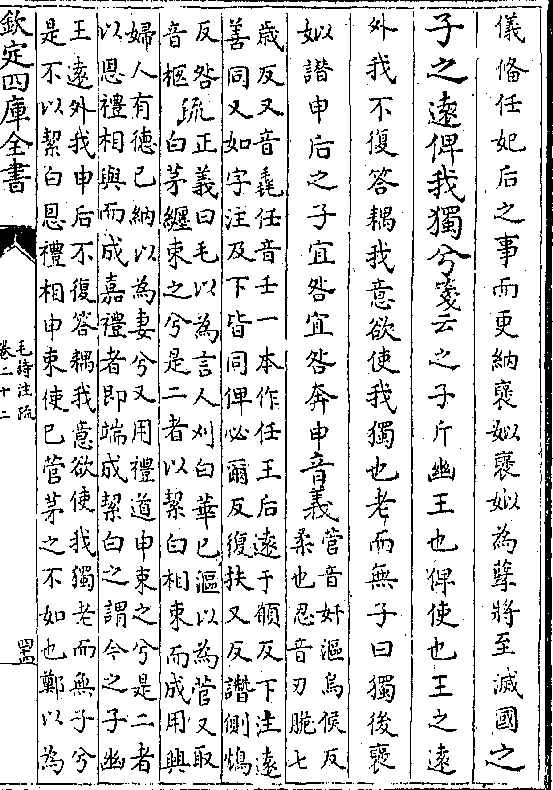 儀備任妃后之事而更納褒姒褒姒為孽將至滅國之
子之遠俾我獨兮箋云之子斥幽王也俾使也王之遠
外我不復答耦我意欲使我獨也老而無子曰獨後褒
姒譖申后之子宜咎宜咎奔申音義
菅音奸漚烏候反
柔也忍音刃脆七
歲反又音毳任音壬一本作任王后遠于願反下注遠
善同又如字注及下皆同俾必爾反復扶又反譖側鴆
反咎
音柩
疏
正義曰毛以為言人刈白華已漚以為菅又取
白茅纏束之兮是二者以絜白相束而成用興
婦人有德已納以為妻兮又用禮道申束之兮是二者
以恩禮相與而成嘉禮者即端成絜白之謂今之子幽
王遠外我申后不復答耦我意欲使我獨老而無子兮
是不以絜白恩禮相申束使已菅茅之不如也鄭以為
欽定四庫全書
毛詩注疏
卷二十二